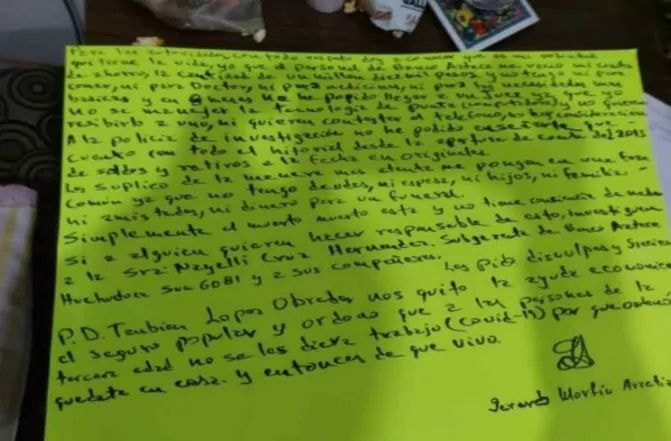 Para las autoridades con todo respeto les comunico que es mi voluntad
quitarme la vida, ya que el personal de Banco Azteca me vacio mi cuenta
de ahorro, la cantidad de un millon diez mil pesos y no tengo ni para
comer, ni para Doctor, ni para medicina, ni para las necesidades mas
basicas y en meses no he podido llegar a
no se manejar la tecnologia de punta (computadoras) y no quieren
recibirlo a uno, ni quieren contestar el telefono, no hay consideracion
A la policia de investigación no he podido
cuento con todo el historial desde la apertura de cuenta del 2013
de saldos y retiros a la fecha en originales.
Les suplico de la manera mas atenta me pongan en una fosa
común ya que no tengo deudos, ni esposa, ni hijos, ni familia
ni amistades, ni dinero para un funeral.
Simplemente el muerto muerto esta y no tiene conciencia de nada
Si a alguien quieren hacer responsable de esto, investiguen
a la Srta: Nayelli Cruz Hernandez. Subgerente de Banco Azteca
Huehuetoca Suc 6081 y a sus compañeros.
Les pido disculpas y
P.D. Tambien Lopez Obrador nos quito la ayuda economica
el seguro popular y ordeno que a las personas de la
tercera edad no se les diera trabajo (covid-19) por que
quedate en casa. y entonces de que vivo.
Gerardo